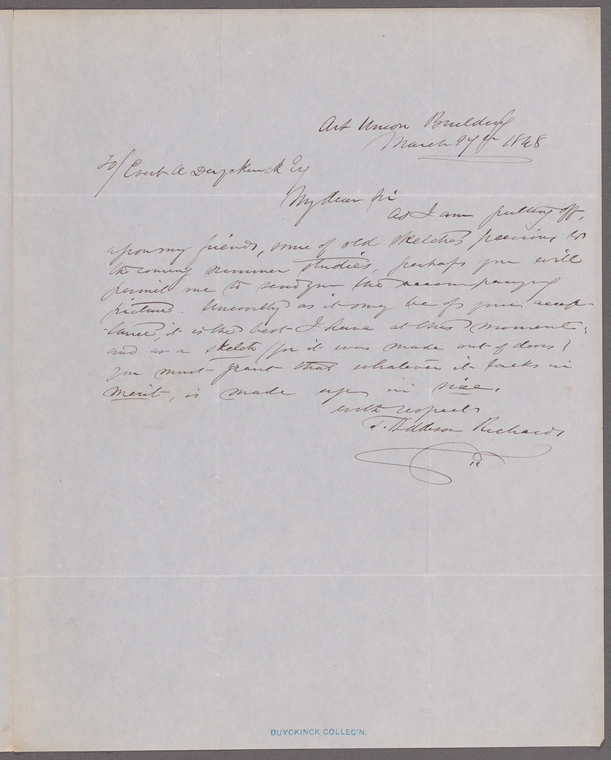 Art Union Building
March 27th 1848
To/ Evert A Duyckinck Esq
My dear Sir
As I am putting off,
upon my friends, some of old sketches previous to
the coming summer studies, perhaps you will
permit me to send you the accompanying
picture. Unworthy as it may be of your accep-
tance, it is the best I have at this moment;
and as a sketch (for it was made out of doors)
you must grant that whatever it lacks in
merit, is made up in size.
with respects
T. Addison Richards
DUYCKINCK COLLEC'N.